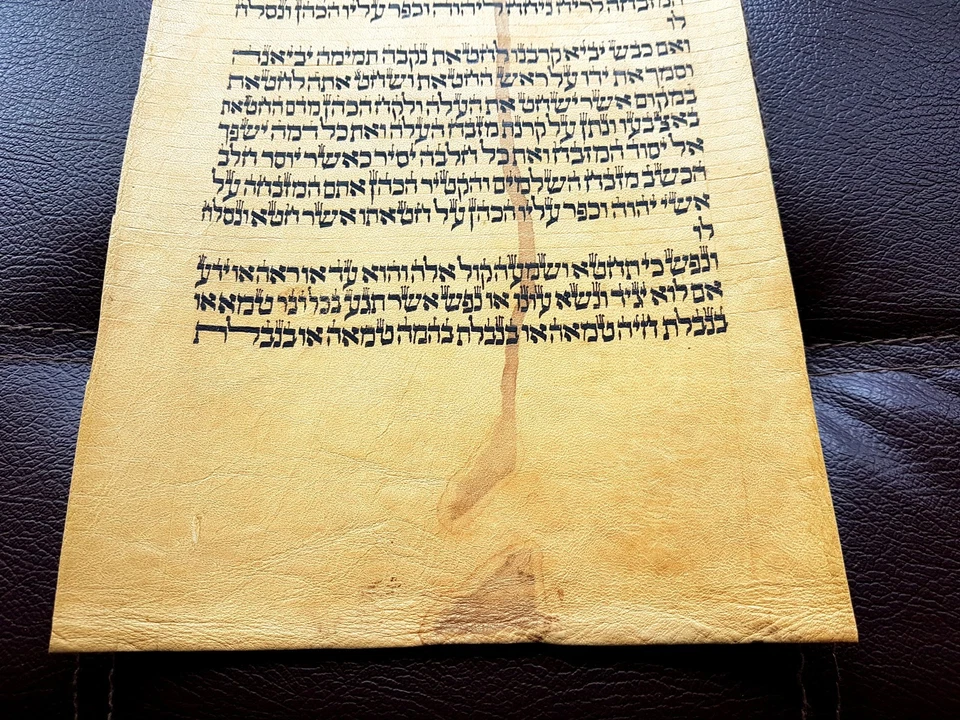 המזבחה לריח ניחוח ליהוה וכפר עליו הכהן ונסלח
לו
ואם כבש יביא קרבנו לחטאת נקבה תמימה יביאנה
וסמך את ידו על ראש החטאת ושחט אתה לחטאת
במקום אשר ישחט את העלה ולקח הכהן מדם החטאת
באצבעו ונתן על קרנת מזבח העלה ואת כל דמה ישפך
אל יסוד המזבח ואת כל חלבה יסיר כאשר יוסר חלב
הכשב מזבח השלמים והקטיר הכהן אתם המזבחה על
אשי יהוה וכפר עליו הכהן על חטאתו אשר חטא ונסלח
לו
ונפש כי תחטא ושמעה קול אלה והוא עד או ראה או ידע
אם לוא יגיד ונשא עונו או נפש אשר תגע בכל דבר טמא או
בנבלת חיה טמאה או בנבלת בהמה טמאה או בנבלת